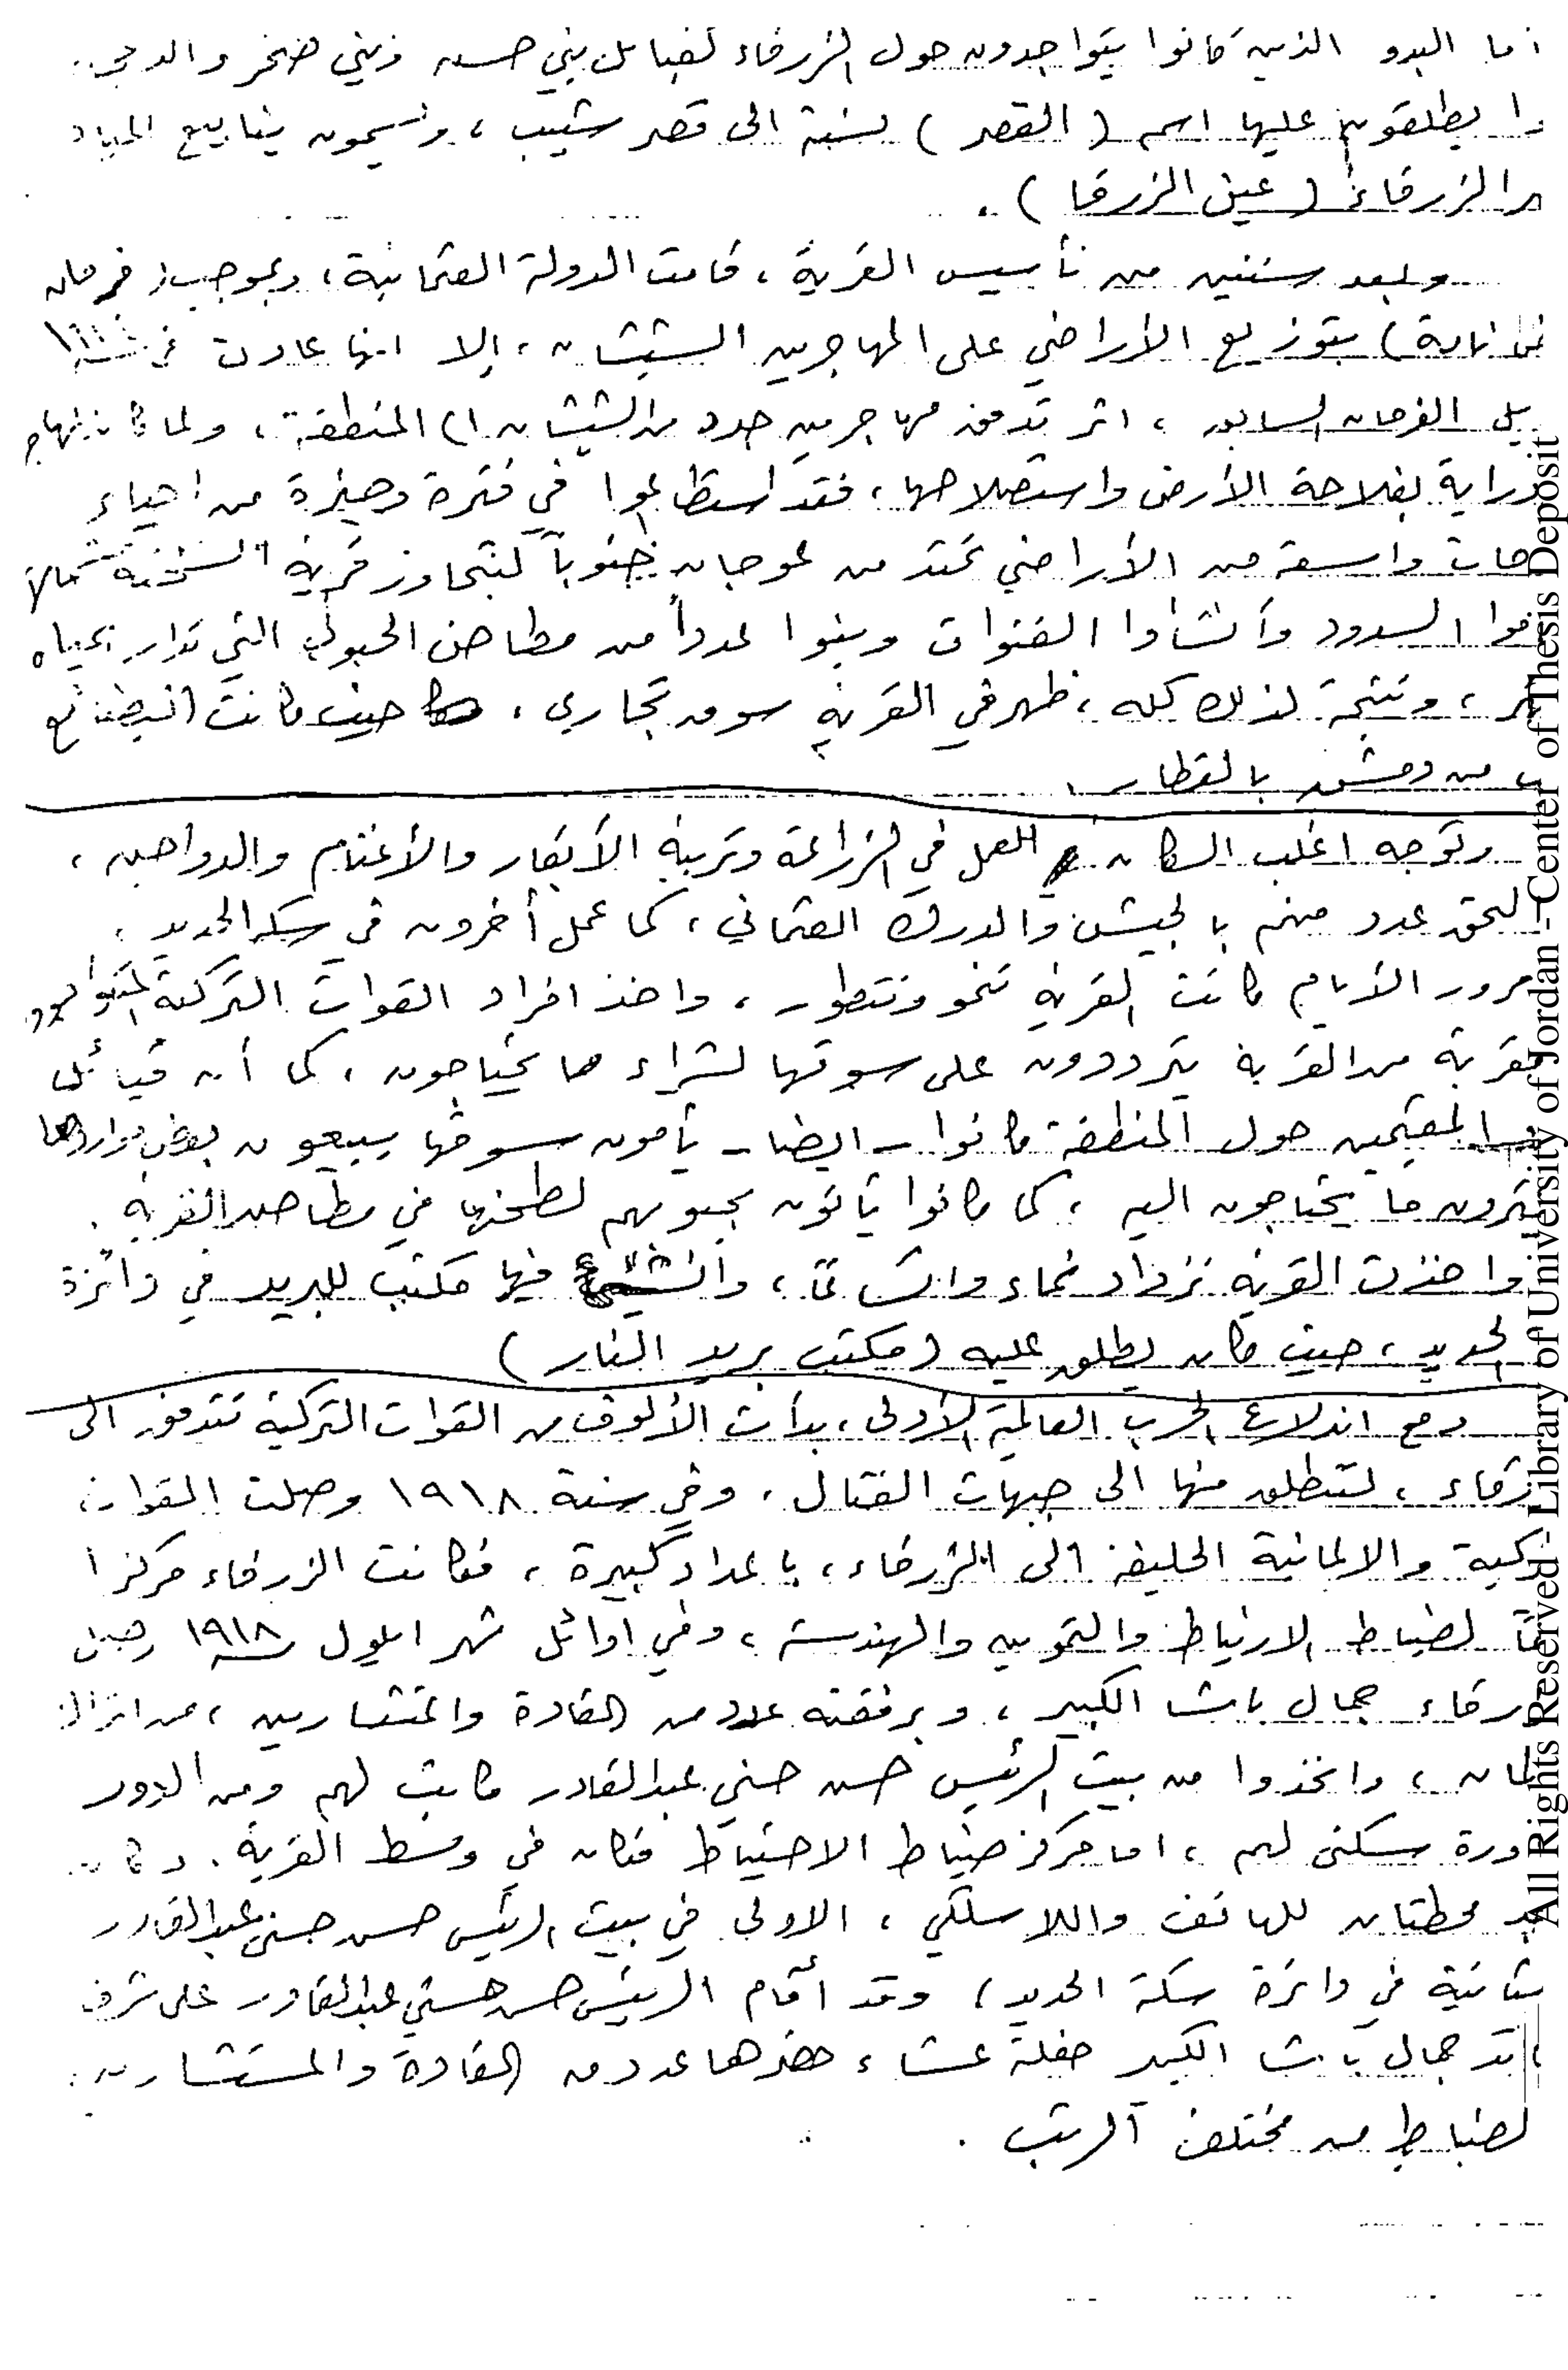 أما البدو الذين كانوا يتواجدون حول الزرقاء كقبائل بني حسن وبني صخر والدعجة
وا يطلقون عليها اسم (القصر) نسبة الى قصر شبيب، ويسمون ينابيع المياه
الزرقاء (عين الزرقا).
وبعد سنتين من تأسيس القرية، قامت الدولة العثمانية، وبموجب (فرمان
) بتوزيع الأراضي على المهاجرين الششان، إلا انها عادت في
يل الفرمان السابق، اثر تدفق مهاجرين جدد من الششان الى المنطقة، ولما كان
دراية بفلاحة الأرض واستصلاحها، فقد استطاعوا في فترة وجيزة من احياء
حات واسعة من الأراضي تمتد من عوجان جنوباً لتتجاوز قرية السخنة شمالاً
موا السدود وأنشأوا القنوات وبنوا عدداً من مطاحن الحبوب التي تدار بمياه
هر، ونتيجة لذلك كله، ظهر في القرية سوق تجاري، حيث كانت البضائع
من دمشق بالقطار.
وتوجه اغلب السكان للعمل في الزراعة وتربية الأبقار والأغنام والدواجن،
التحق عدد منهم بالجيش والدرك العثماني، كما عمل أخرون في سكة الحديد،
مرور الأيام كانت القرية تنمو وتتطور، واخذ افراد القوات التركية المتواجدون
لقربة من القرية يترددون على سوقها لشراء ما يحتاجون، كما أن قبائل
المقيمين حول المنطقة كانوا - ايضا - يأمون سوقها يبيعون بعض مواردها
شترون ما يحتاجون اليه، كما كانوا يأتون بحبوبهم لطحنها في مطاحن القرية.
واخذت القرية تزداد نماء واتساعًا، وأنشئ فيها مكتب للبريد في دائرة
الحديد، حيث كان يطلق عليه (مكتب بريد النار)
ومع اندلاع الحرب العالمية الأولى، بدأت الألوف من القوات التركية تتدفق الى
زرقاء، لتنطلق منها الى جبهات القتال، وفي سنة ١٩١٨ وصلت القوات
ركية والالمانية الحليفة الى الزرقاء، باعداد كبيرة، فكانت الزرقاء مركزا
مًا لضباط الارتباط والتموين والهندسة، وفي اوائل شهر ايلول سنة ١٩١٨ وصل
زرقاء جمال باشا الكبير، وبرفقته عدد من القادة والمستشارين، من اتراك
لمان، واتخذوا من بيت الرئيس حسن حسني عبدالقادر مكاتب لهم ومن الدور
اورة سكنى لهم، اما مركز ضباط الاحتياط فكان في وسط القرية. وكان
محطتان للهاتف واللاسلكي، الاولى في بيت الرئيس حسن حسني عبدالقادر
لثانية في دائرة سكة الحديد، وقد أقام الرئيس حسن حسني عبدالقادر على شرف
ائد جمال باشا الكبير حفلة عشاء حضرها عدد من القادة والمستشارين
لضباط من مختلف الرتب.
All Rights Reserved - Library of University of Jordan - Center of Thesis Deposit